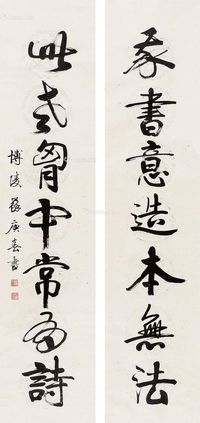 我書意造本無法
此老胷中常有詩
博陵蘇庚春書